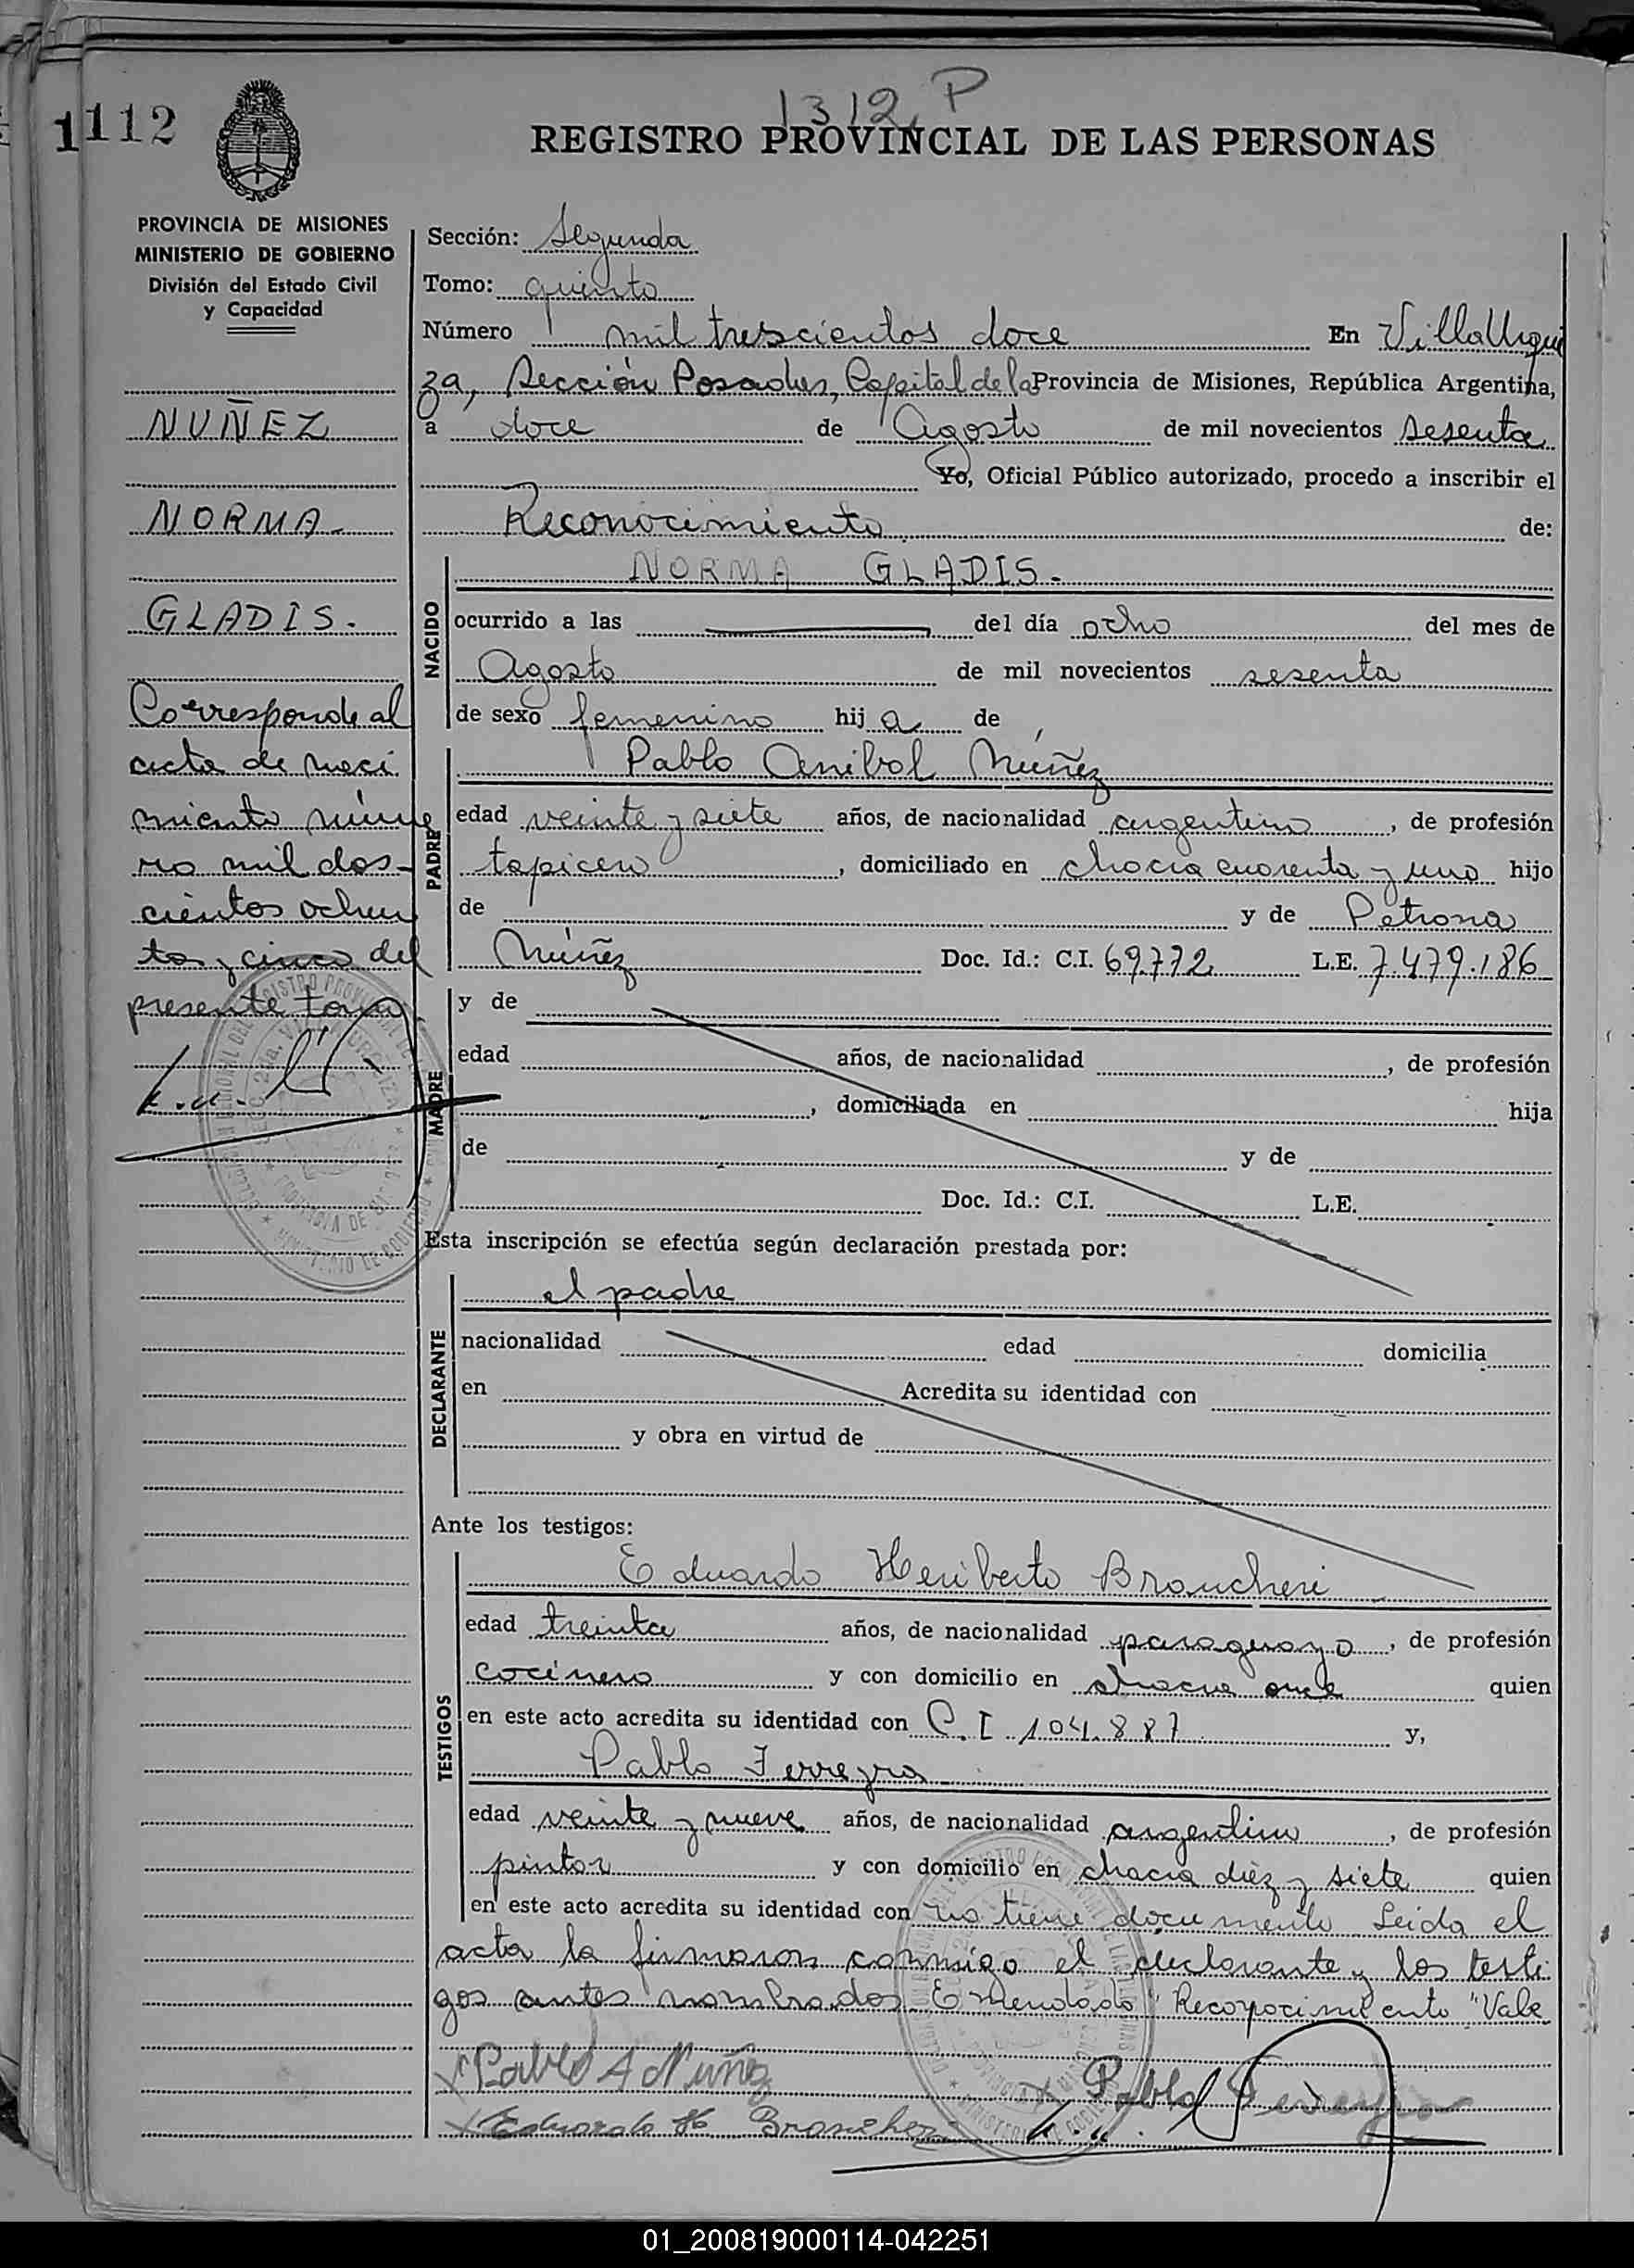 1312 P
1112
REGISTRO PROVINCIAL DE LAS PERSONAS
PROVINCIA DE MISIONES
MINISTERIO DE GOBIERNO
División del Estado Civil
y Capacidad
NUÑEZ
NORMA
GLADIS.
Corresponde al
acta de naci
miento núme
ro mil dos-
cientos ochen
ta y cinco del
presente tomo
Sección: Segunda
Tomo: quinto
Número mil trescientos doce En Villa Urqui
za, Sección Posadas, Capital de la Provincia de Misiones, República Argentina,
a doce de Agosto de mil novecientos sesenta
Yo, Oficial Público autorizado, procedo a inscribir el
Reconocimiento de:
NACIDO
NORMA GLADIS.
ocurrido a las del día ocho del mes de
Agosto de mil novecientos sesenta
de sexo femenino hij a de
PADRE
Pablo Anibal Núñez
edad veinte y siete años, de nacionalidad argentino, de profesión
tapicero, domiciliado en chacra cuarenta y uno hijo
de y de Petrona
Núñez Doc. Id.: C.I. 69.772 L.E. 7.479.186
MADRE
y de
edad años, de nacionalidad , de profesión
, domiciliada en hija
de y de
Doc. Id.: C.I. L.E.
Esta inscripción se efectúa según declaración prestada por:
DECLARANTE
el padre
nacionalidad edad domicilia
en Acredita su identidad con
y obra en virtud de
Ante los testigos:
TESTIGOS
Eduardo Heriberto Brancheri
edad treinta años, de nacionalidad paraguayo, de profesión
cocinero y con domicilio en chacra once quien
en este acto acredita su identidad con C. I 104.887 y,
Pablo Ferreyra
edad veinte y nueve años, de nacionalidad argentino, de profesión
pintor y con domicilio en chacra diez y siete quien
en este acto acredita su identidad con no tiene documento Leida el
acta la firmaron conmigo el declarante y los testi
gos antes nombrados Emendado "Reconocimiento" Vale
Pablo A Nuñez
Pablo Ferreyra
Eduardo H. Brancheri
01_200819000114-042251